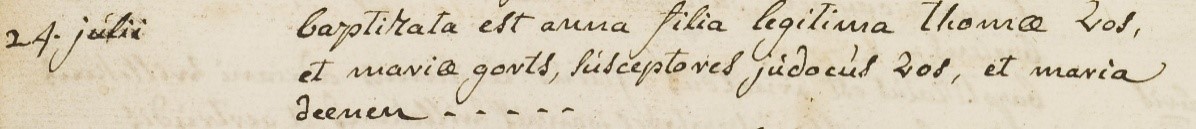 24. júlii baptizata est anna filia legitima thomæ Vos,
et mariæ gorts, súsceptores júdocús Vos, et maria
deenen - - - - -